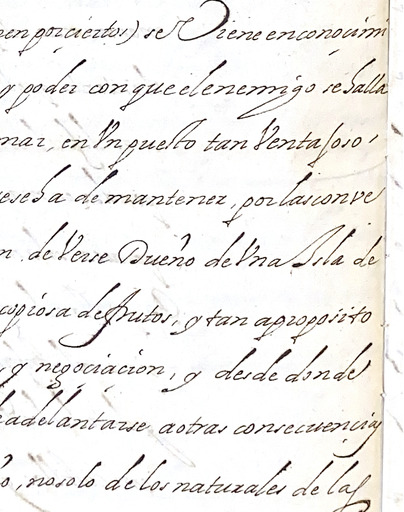 nen por ciertos) se Viene en conocimi
y poder con que el enemigo se halla
mar, en Vn puesto tan Ventajoso,
se ha de mantener, por las conve
n de Verse Dueño de Vna Isla de
copiosa de frutos, y tan aproposito
, y negociación, y desde donde
adelantarse a otras consecuencias
no solo de los naturales de las